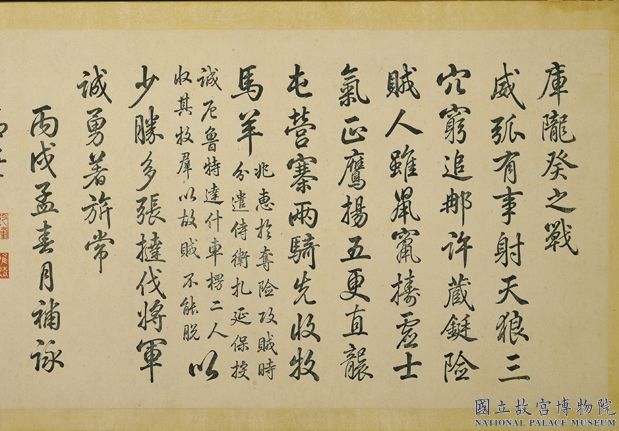 庫隴癸之戰
威弧有事射天狼三
穴窮追那許藏鋌險
賊人雖鼠竄擣虛士
氣正鷹揚五更直襲
屯營寨兩騎先收牧
馬羊
兆惠於奪險攻賊時
分遣侍衛扎延保投
誠厄魯特達什車楞二人
收其牧羣以故賊不能脫
以
少勝多張撻伐將軍
誠勇著旂常
丙戌孟春月補詠
國立故宮博物院
NATIONAL PALACE MUSEUM